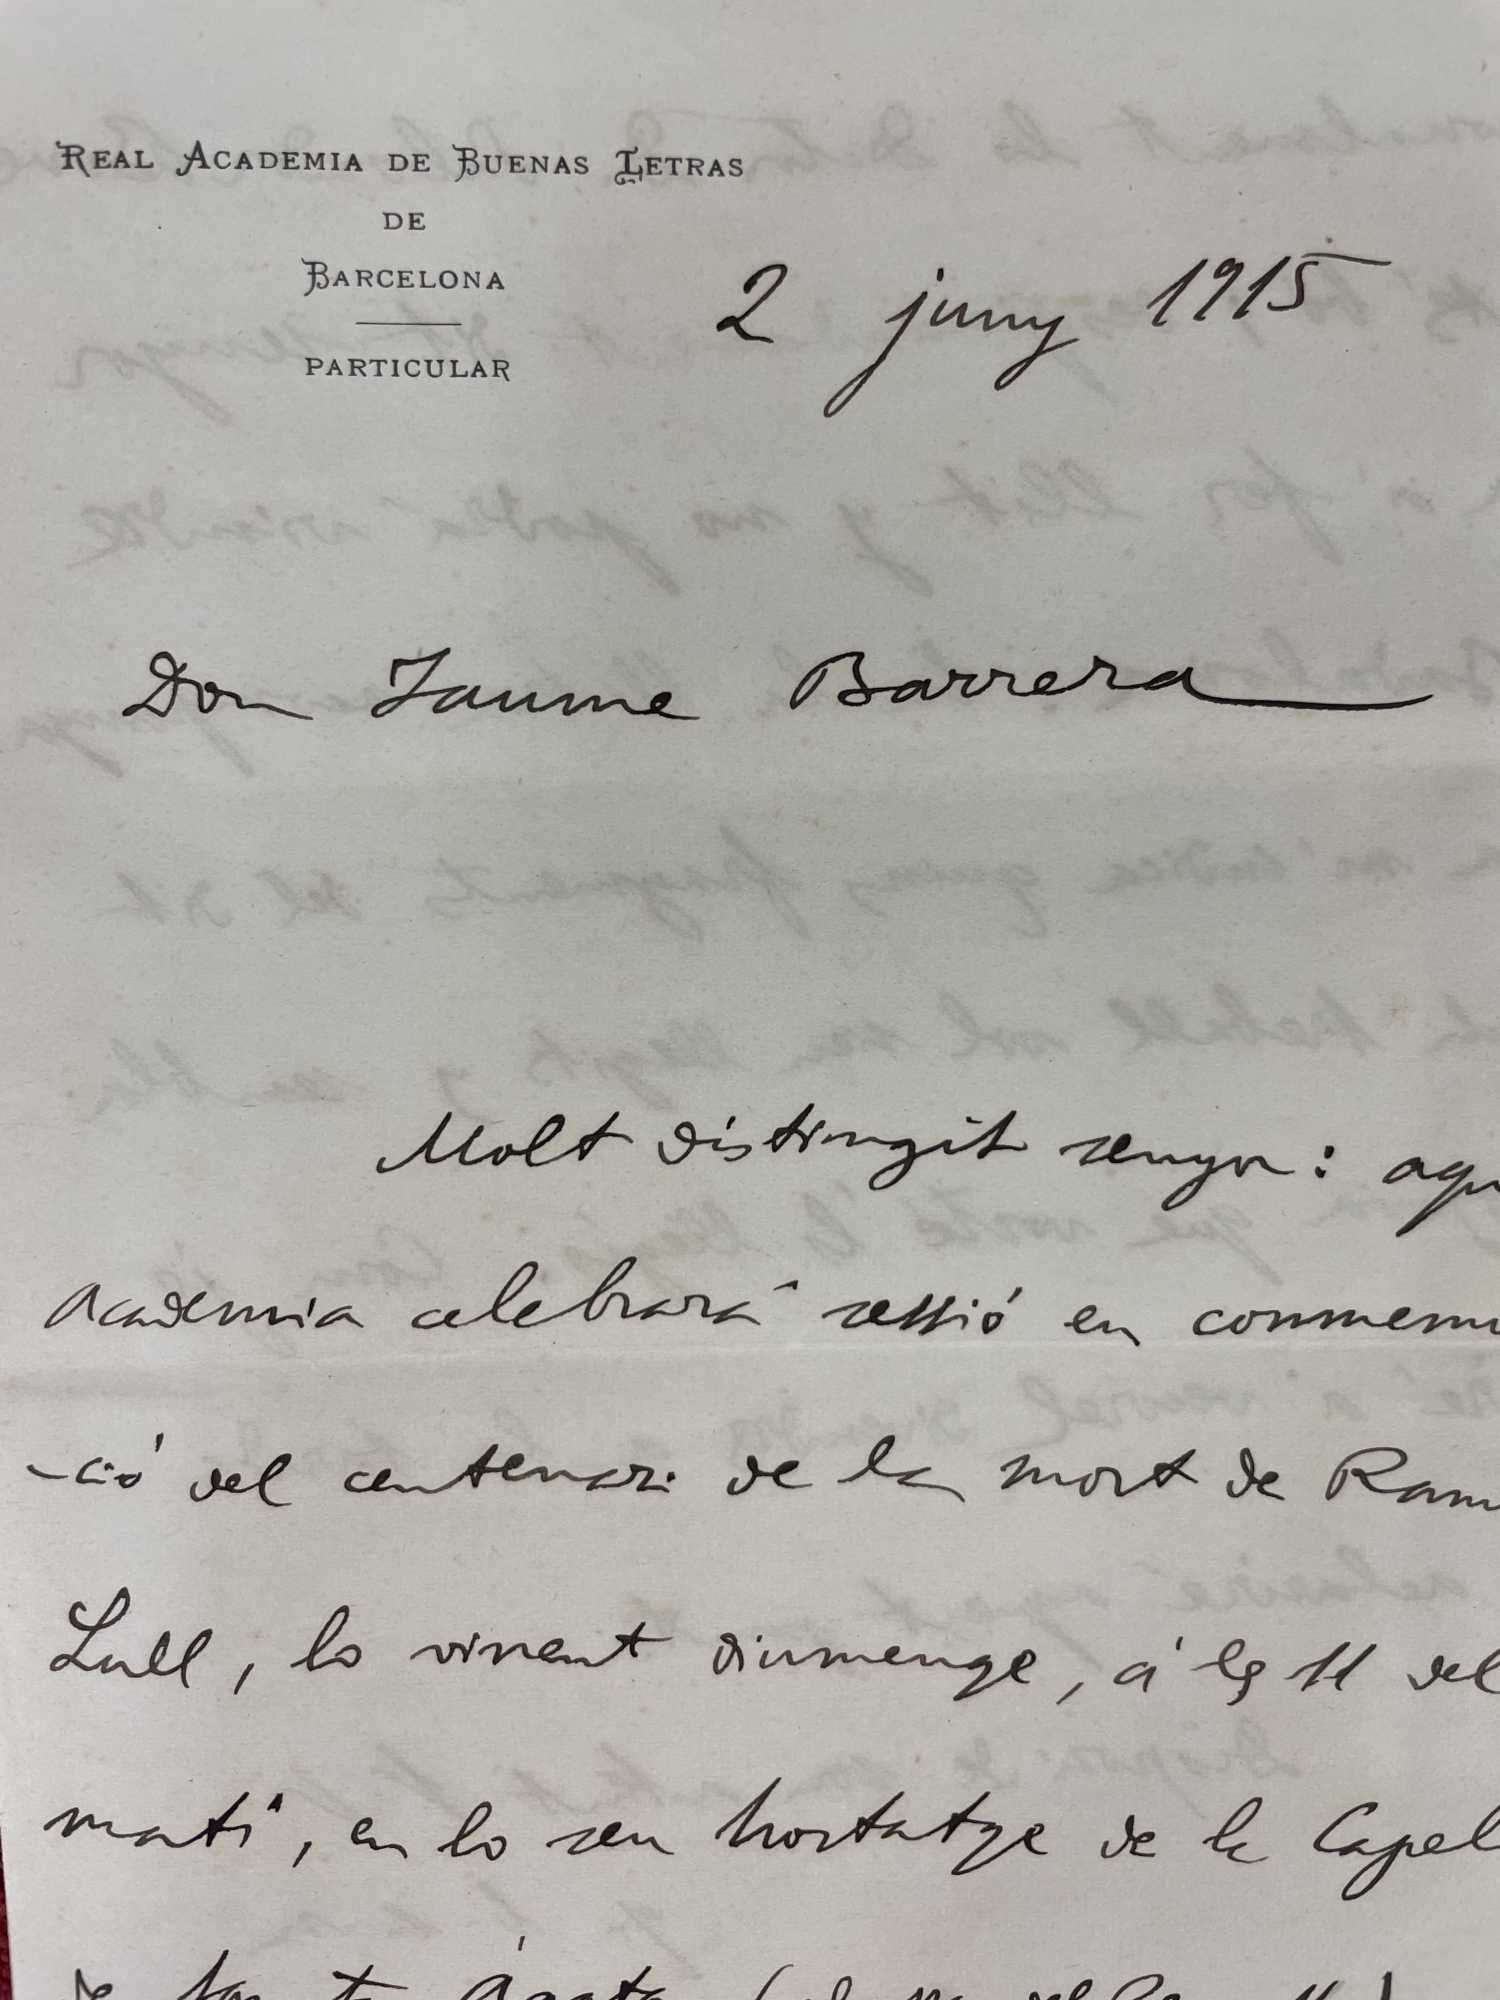 REAL ACADEMIA DE BUENAS LETRAS
DE
BARCELONA
PARTICULAR
2 juny 1915
Don Jaume Barrera
Molt distingit senyor: aqu
Academia celebrará sessió en conmemo
-ció del centenari de la mort de Ram
Lull, lo vinent diumenge, á les 11 del
matí, en lo seu hostatge de la Capel
de Santa Ágata